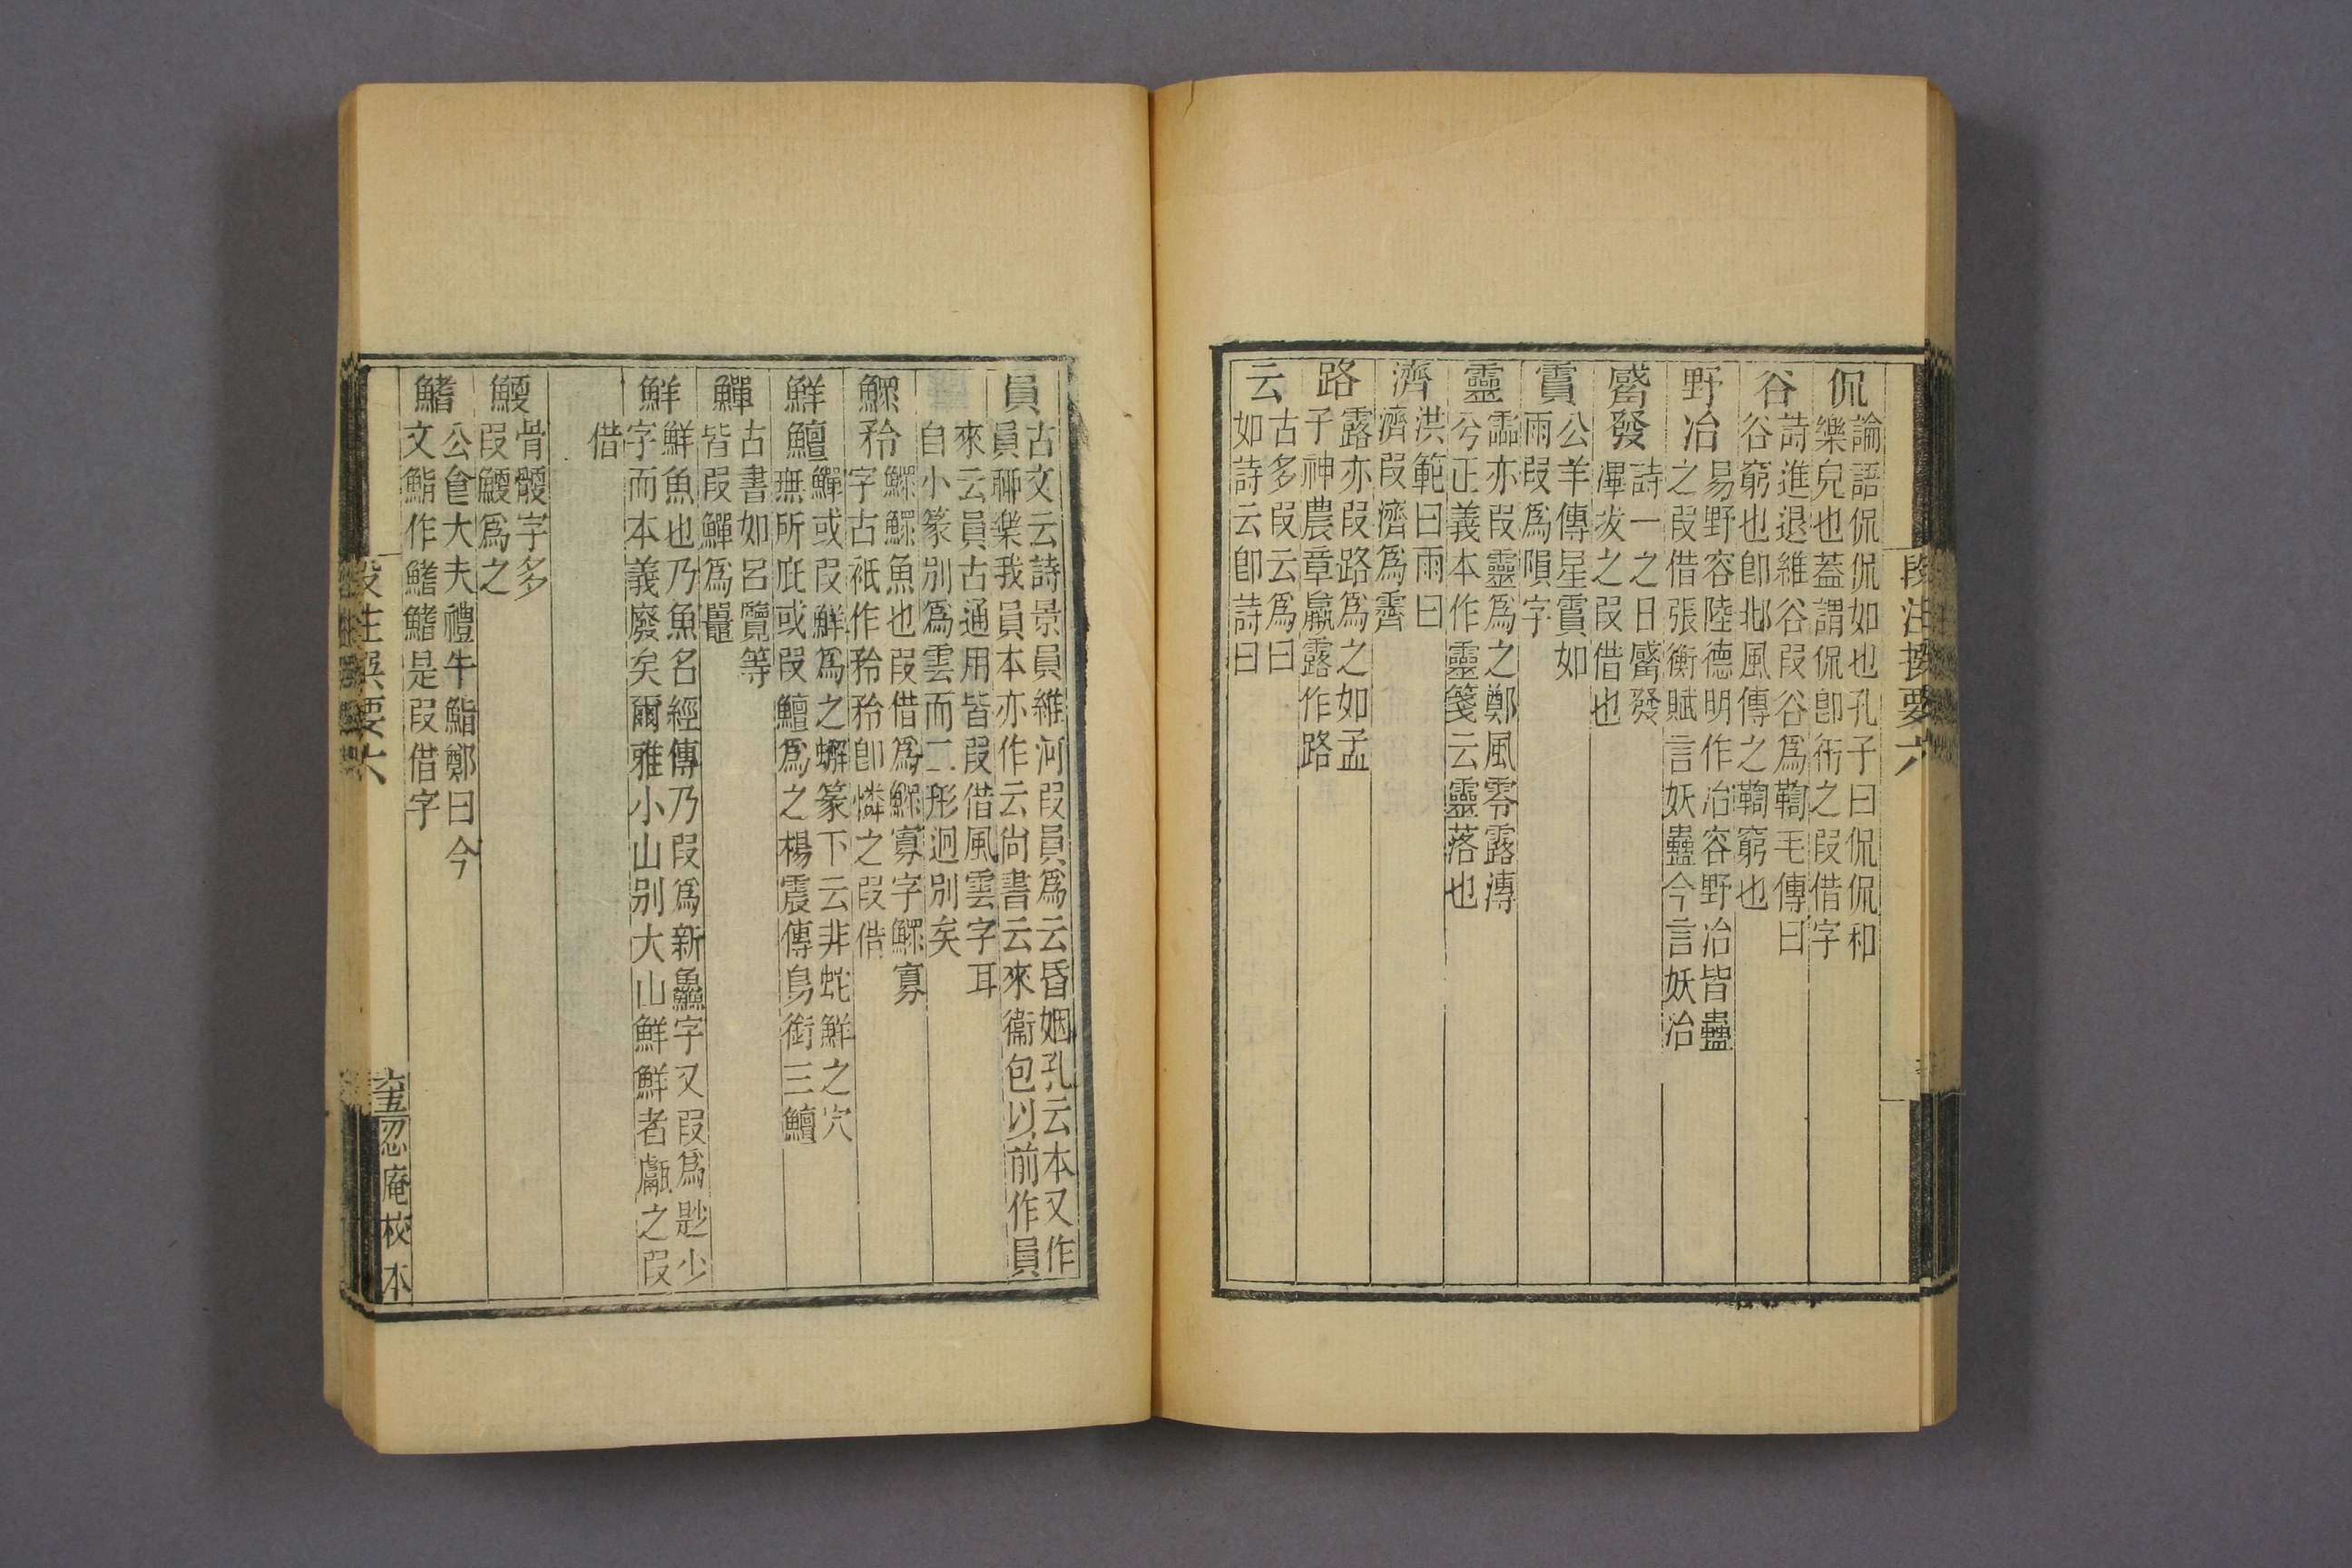 段注撰要六
侃
論語侃侃如也孔子曰侃侃和
樂皃也葢謂侃卽衎之叚借字
谷
詩進退維谷叚谷爲鞫毛傳曰
谷窮也卽邶風傳之鞫窮也
野冶
易野容陸德明作冶容野冶皆蠱
之叚借張衡賦言妖蠱今言妖冶
觱發
詩一之日觱發
滭冹之叚借也
霣
公羊傳星霣如
雨叚爲隕字
靈
霝亦叚靈爲之鄭風零露漙
兮正義本作靈箋云靈落也
濟
洪範曰雨曰
濟叚濟爲霽
路
露亦叚路爲之如孟
子神農章羸露作路
云
古多叚云爲曰
如詩云卽詩曰
員
古文云詩景員維河叚員爲云昏姻孔云本又作
員聊樂我員本亦作云尙書云來衞包以前作員
來云員古通用皆叚借風雲字耳
自小篆別爲雲而二形迥別矣
鰥矜
鰥鰥魚也叚借爲鰥寡字鰥寡
字古衹作矜矜卽憐之叚借
鮮鱣
鱓或叚鮮爲之蠏篆下云非蛇鮮之穴
無所庇或叚鱣爲之楊震傳鳥銜三鱣
鱓
古書如呂覽等
皆叚鱓爲鼉
鮮
鮮魚也乃魚名經傳乃叚爲新鱻字又叚爲尟少
字而本義廢矣爾雅小山别大山鮮鮮者甗之叚
借
鯁
骨骾字多
叚鯁爲之
鰭
公食大夫禮牛鮨鄭曰今
文鮨作鰭鰭是叚借字
段注撰要六
忍庵校本